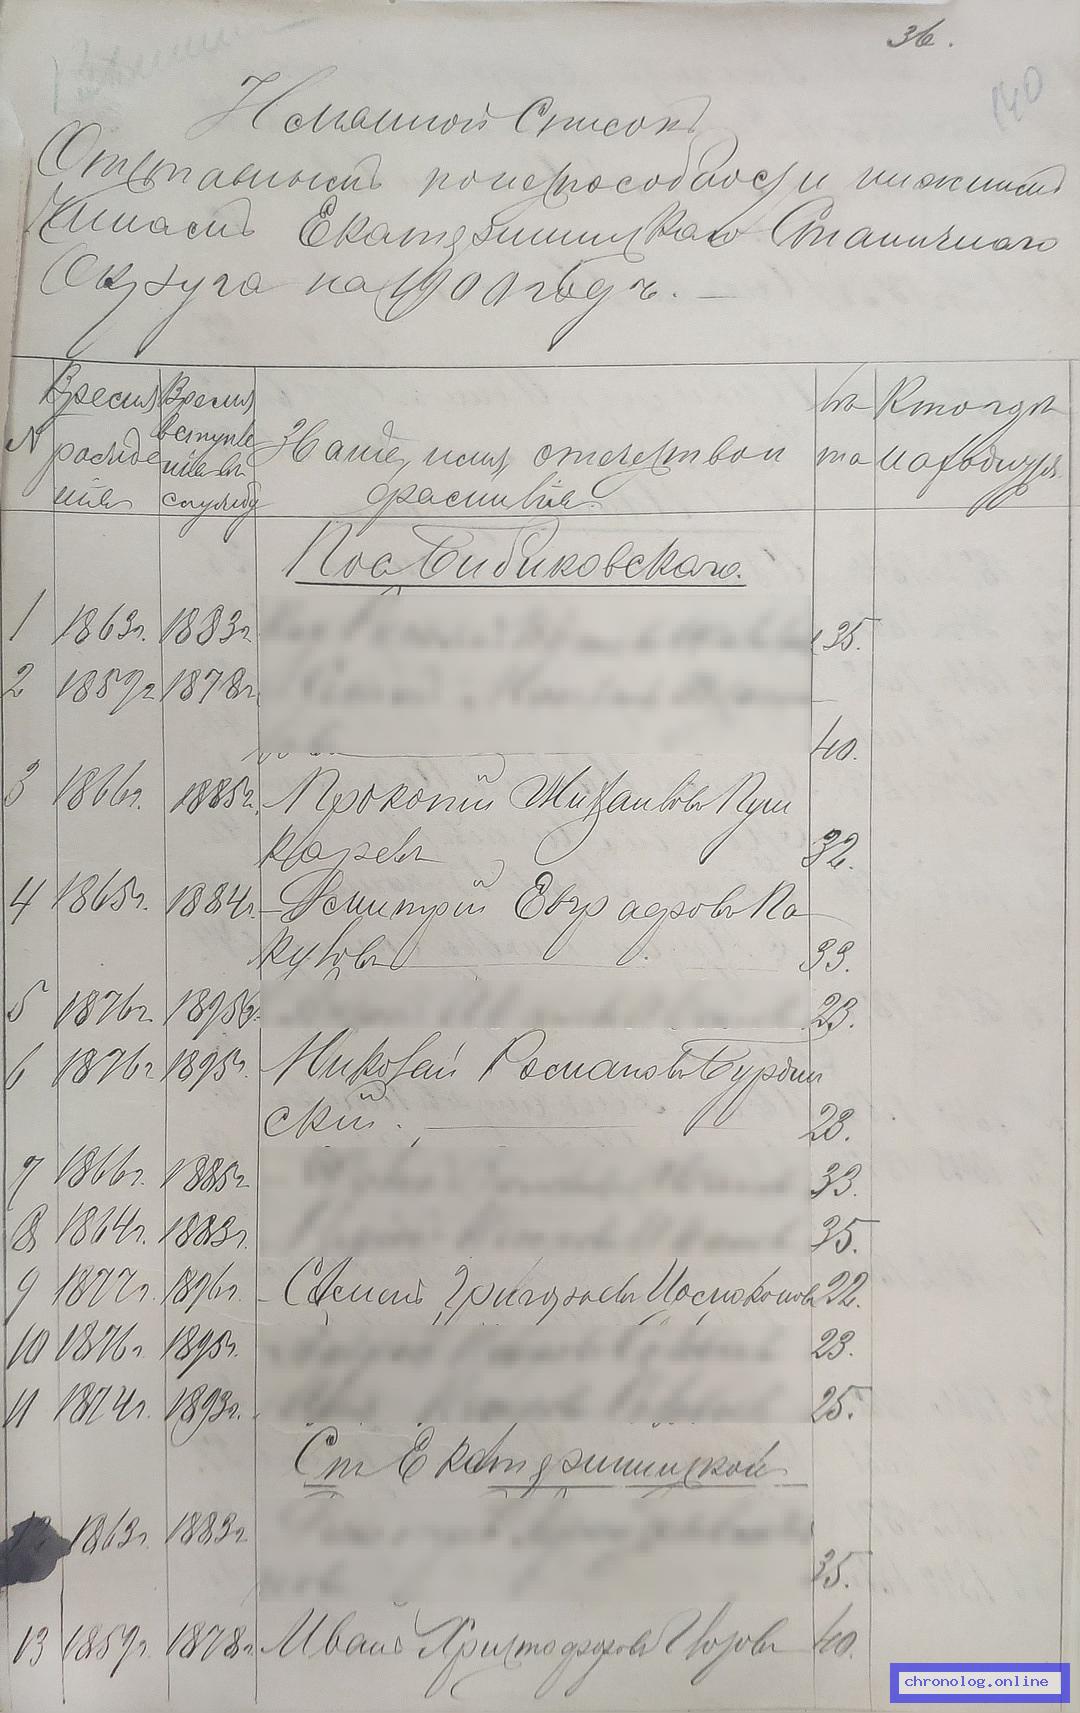 36.
140
Именной Списокъ
Отставнымъ по неспособности нижнимъ
Чинамъ Екатерининскаго Станичнаго
Округа на 1901 годъ. —
N
Время рожденія
Время вступленія въ службу
Званіе, имя, отечество и фамилія.
Лѣта
Кто гдѣ находится
Пос Бибиковскаго.
1 1863г. 1883г. 35.
2 1859г 1878г. 40.
3 1866г. 1885г. Прокопій Михайловъ Пуш
каревъ 32.
4 1865г. 1884г. Дмитрій Евграфовъ Па
куловъ 33.
5 1876г. 1895г. 23.
6 1876г 1895г. Николай Романовъ Бурдин
скій. 23.
7 1866г. 1885г 33.
8 1864г. 1883г. 35.
9 1877г. 1896г. Семенъ Григорьевъ 22.
10 1876г. 1895г. 23.
11 1874г. 1893г. 25.
Ст Екатерининской
12 1863г. 1883г 35.
13 1859г. 1878г. Иванъ Христофоровъ 40.
chronolog.online